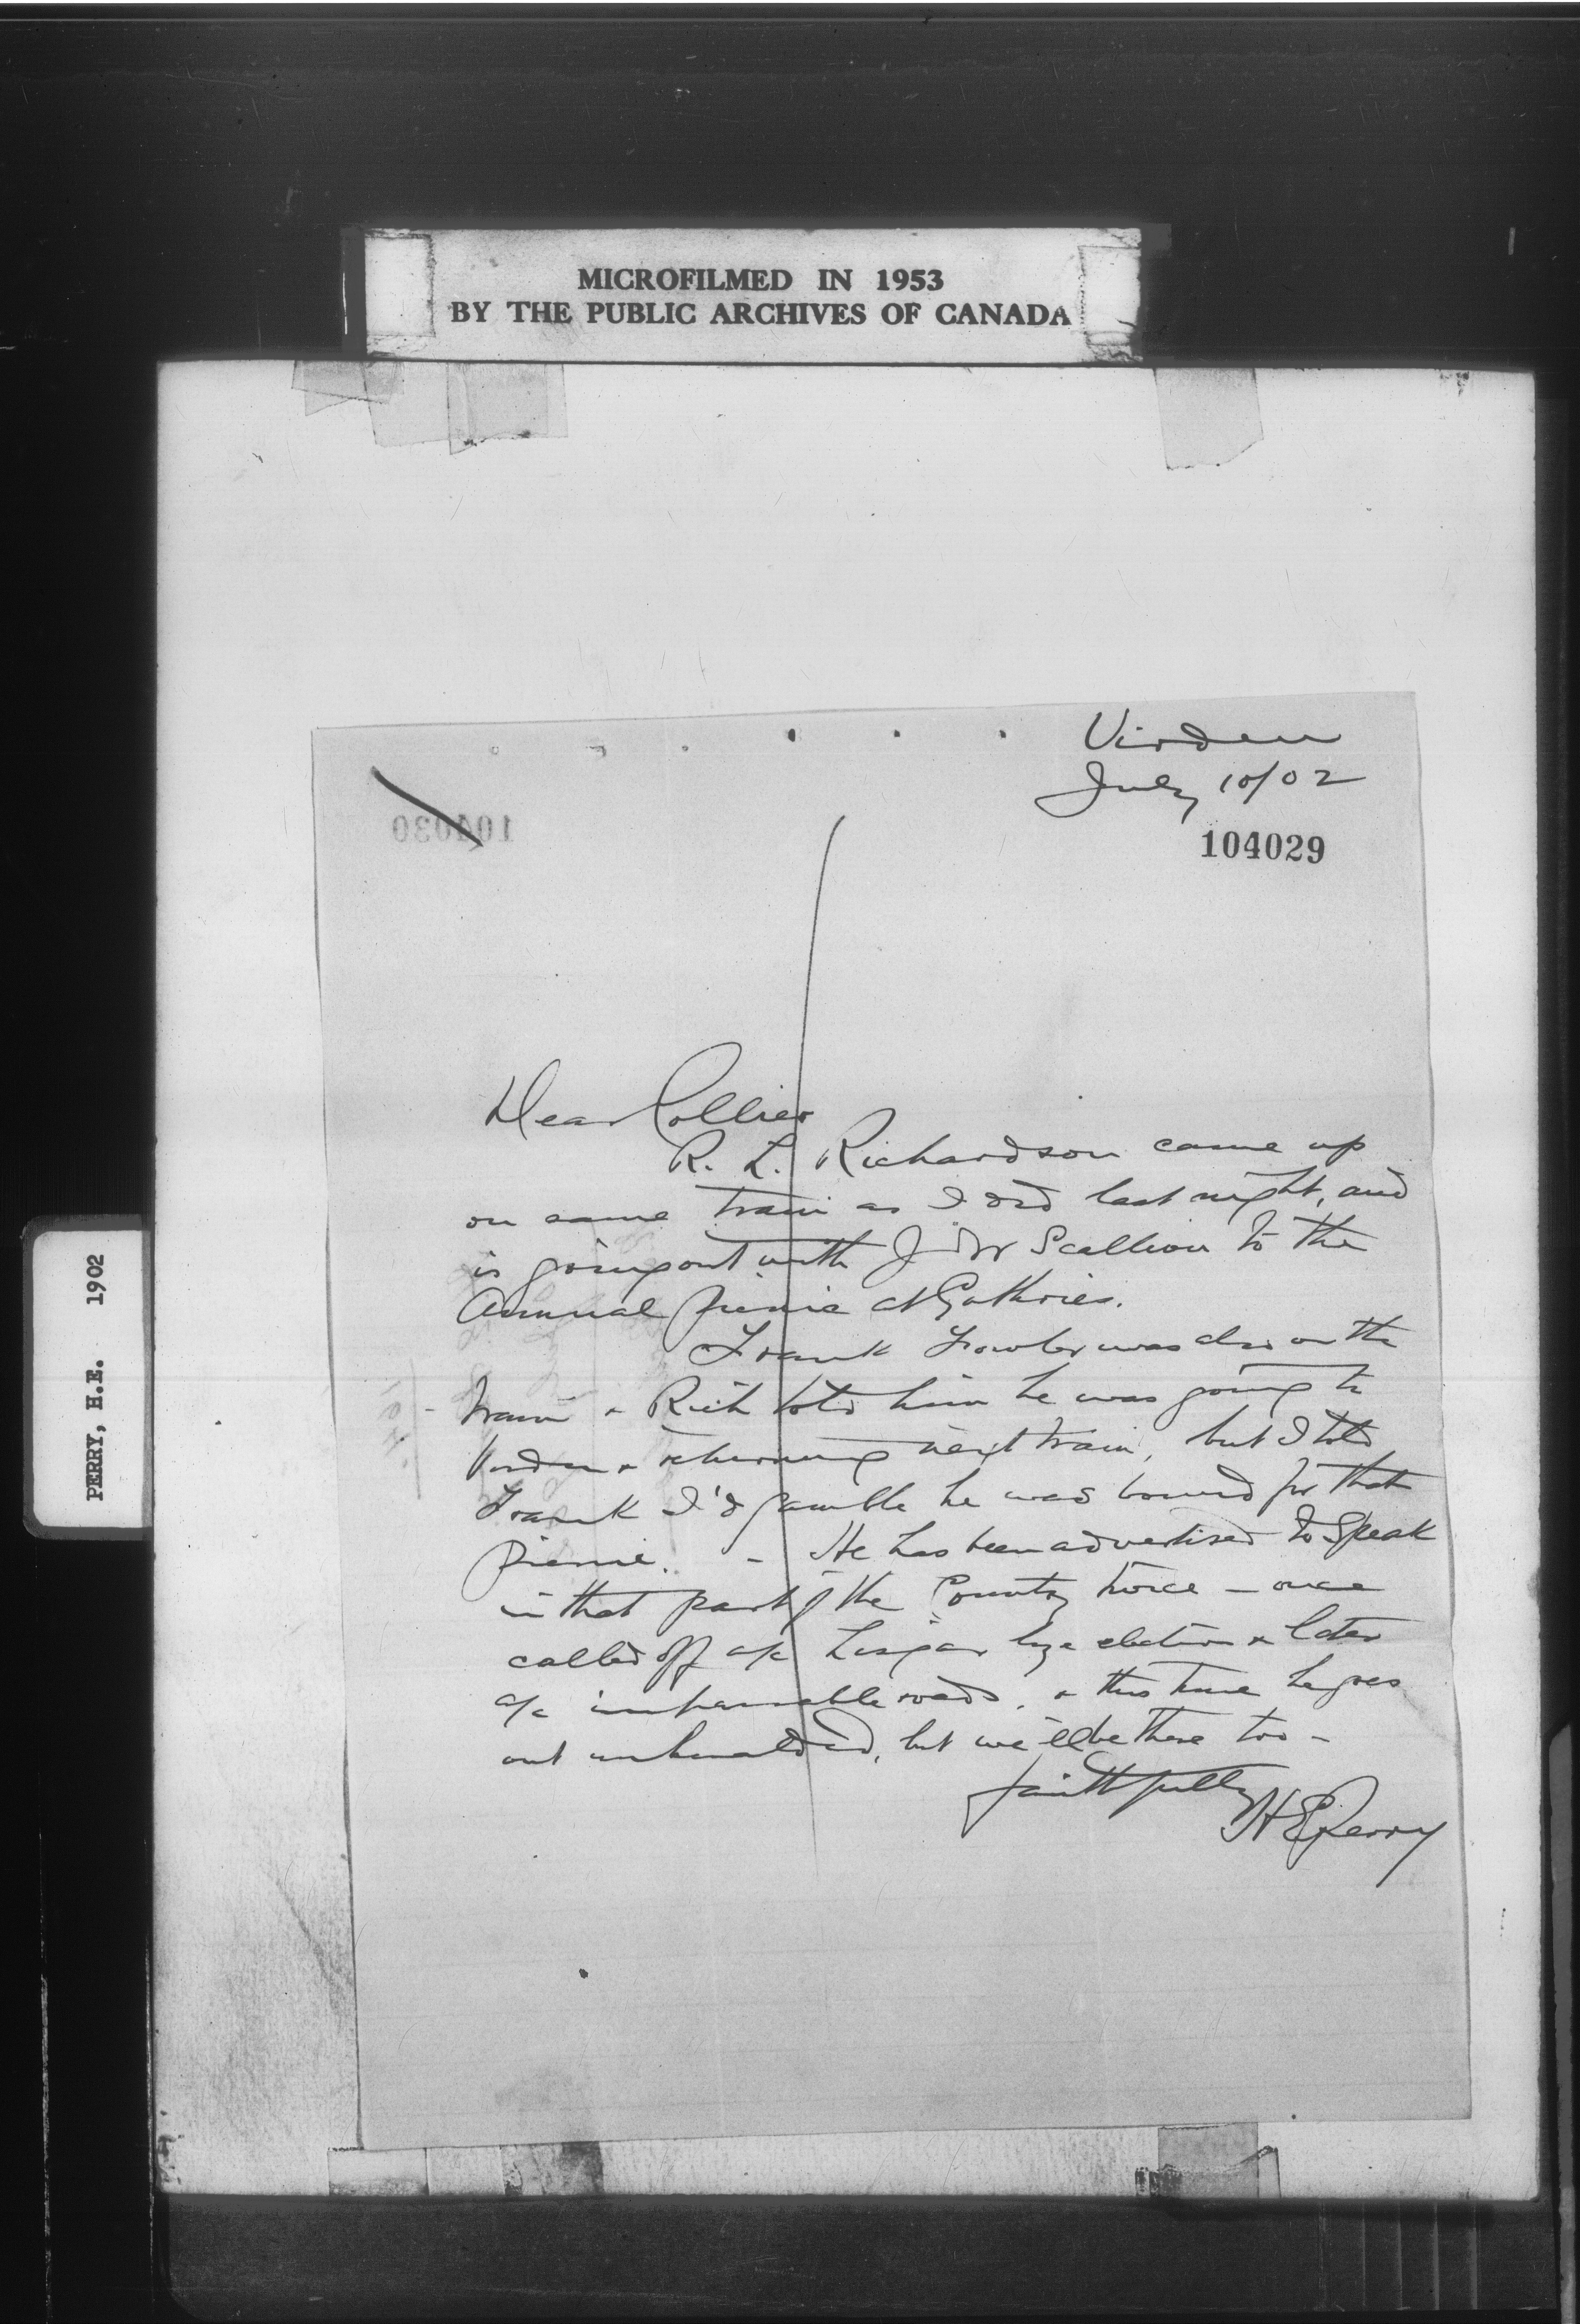 MICROFILMED IN 1953
BY THE PUBLIC ARCHIVES OF CANADA
PERRY, H.E. 1902
Virden
July 10/02
104029
104030
Dear Collier
R. L. Richardson came up
on same train as I did last night, and
is going out with J W Scallion to the
Annual picnic at Guthries.
Frank Fowler was also on the
train & Rich told him he was going to
Virden & returning next train, but I told
Frank I'd gamble he was bound for that
picnic. - He has been advertised to speak
in that part of the County twice - once
called off a/c Lisgar bye election & later
a/c impassable roads, & this time he goes
out unheralded, but we'll be there too -
faithfully
H E Perry